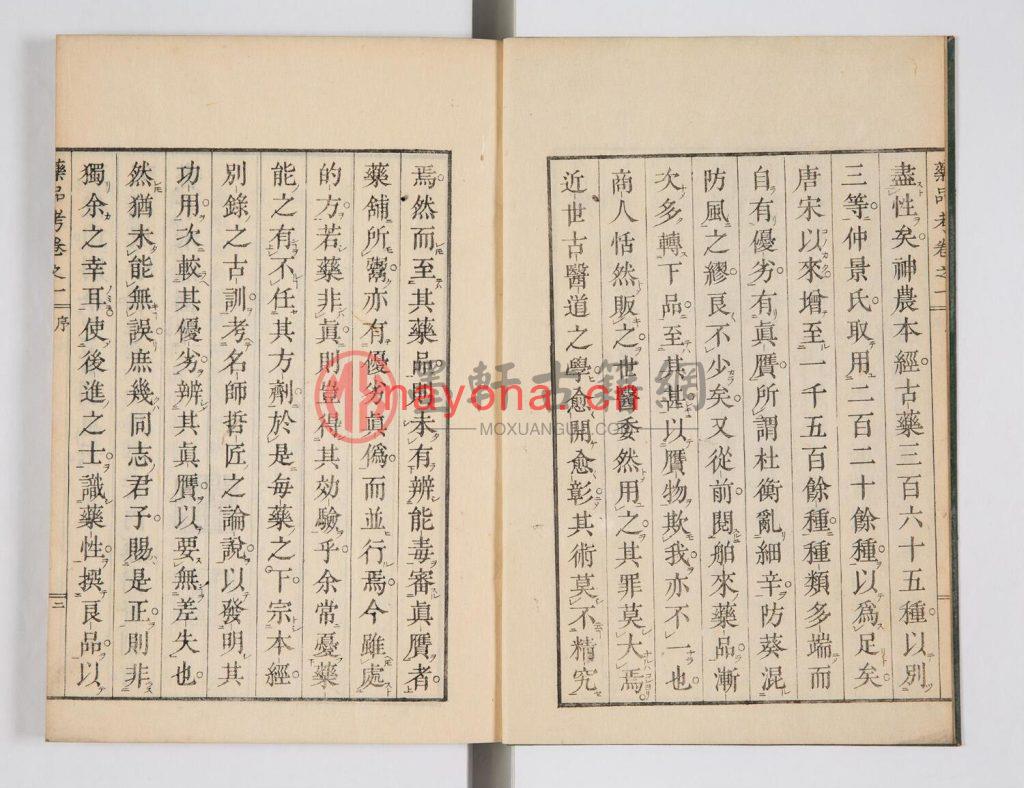 藥品考卷之一
盡性矣神農本經古藥三百六十五種以別
三等仲景氏取用二百二十餘種以爲足矣
唐宋以來增至一千五百餘種種類多端而
自有優劣有眞贋所謂杜衡亂細辛防葵混
防風之繆良不少矣又從前閱舶來藥品漸
次多轉下品至其甚以贋物欺我亦不一也
商人恬然販之世醫委然用之其罪莫大焉
近世古醫道之學愈開愈彰其術莫不精究
焉然而至其藥品則未有辨能毒審眞贋者
藥舖所鬻亦有優劣眞僞而並行焉今雖處
的方若藥非眞則豈得其効驗乎余常憂藥
能之有不任其方劑於是每藥之下宗本經
別錄之古訓考名師哲匠之論說以發明其
功用次較其優劣辨其眞贋以要無差失也
然猶未能無誤庶幾同志君子賜是正則非
獨余之幸耳使後進之士識藥性撰良品以
藥品考卷之一 序 二
墨軒古籍網
mayona.cn
MOXUANGUJI.COM